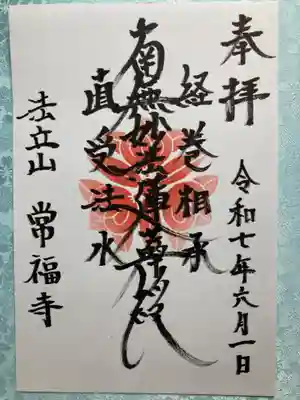 奉拝
令和七年六月一日
経巻相承
南無妙法蓮華経
直受法水
法立山 常福寺